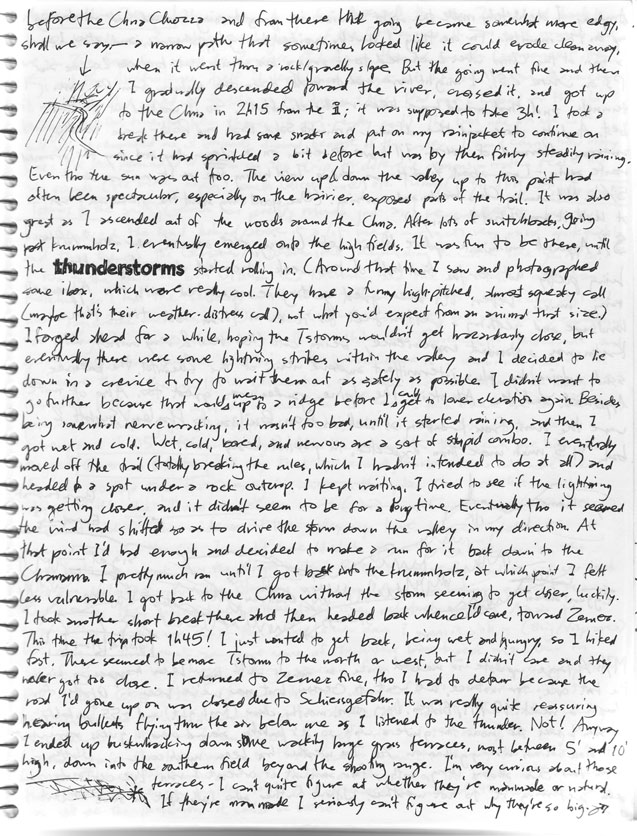 before the Chna Cluozza and from there the going became somewhat more edgy,
shall we say — a narrow path that sometimes looked like it could erode clean away,
when it went thru a rock/gravelly slope. But the going went fine and then
I gradually descended toward the river, crossed it, and got up
to the Chna in 2h15 from the it was supposed to take 3h! I took a
break there and had some snacks and put on my rainjacket to continue on
since it had sprinkled a bit before but was by then fairly steadily raining.
Even tho the sun was out too. The view up & down the valley up to this point had
often been spectacular, especially on the hairier, exposed parts of the trail. It was also
great as I ascended out of the woods around the Chna. After lots of switchbacks, going
past krummholz, I eventually emerged onto the high fields. It was fun to be there, until
the thunderstorms started rolling in. (Around that time I saw and photographed
some ibex, which were really cool. They have a funny high-pitched, almost squeaky call
(maybe that's their weather-distress call), not what you'd expect from an animal that size.)
I forged ahead for a while, hoping the Tstorms wouldn't get hazardously close, but
eventually there were some lightning strikes within the valley and I decided to lie
down in a crevice to try to wait them out as safely as possible. I didn't want to
go further because that would mean up to a ridge before I could get to lower elevation again. Besides
being somewhat nervewracking, it wasn't too bad, until it started raining, and then I
got wet and cold. Wet, cold, bored, and nervous are a sort of stupid combo. I eventually
moved off the trail (totally breaking the rules, which I hadn't intended to do at all) and
headed to a spot under a rock outcrop. I kept waiting. I tried to see if the lightning
was getting closer, and it didn't seem to be for a long time. Eventually tho it seemed
the wind had shifted so as to drive the storm down the valley in my direction. At
that point I'd had enough and decided to make a run for it back down to the
Chamanna. I pretty much ran until I got back into the krummholz, at which point I felt
less vulnerable. I got back to the Chna without the storm seeming to get closer, luckily.
I took another short break there and then headed back whence I'd come, toward Zernez.
This time the trip took 1h45! I just wanted to get back, being wet and hungry, so I hiked
fast. There seemed to be more Tstorms to the north or west, but I didn't care and they
never got too close. I returned to Zernez fine, tho I had to detour because the
road I'd gone up on was closed due to Schiessgefahr. It was really quite reassuring
hearing bullets flying thru the air below me as I listened to the thunder. Not! Anyway
I ended up bushwhacking down some wackily huge grass terraces, most between 5' and 10'
high, down into the southern field beyond the shooting range. I'm very curious about those
terraces - I can't quite figure out whether they're manmade or natural.
If they're manmade I seriously can't figure out why they're so big.